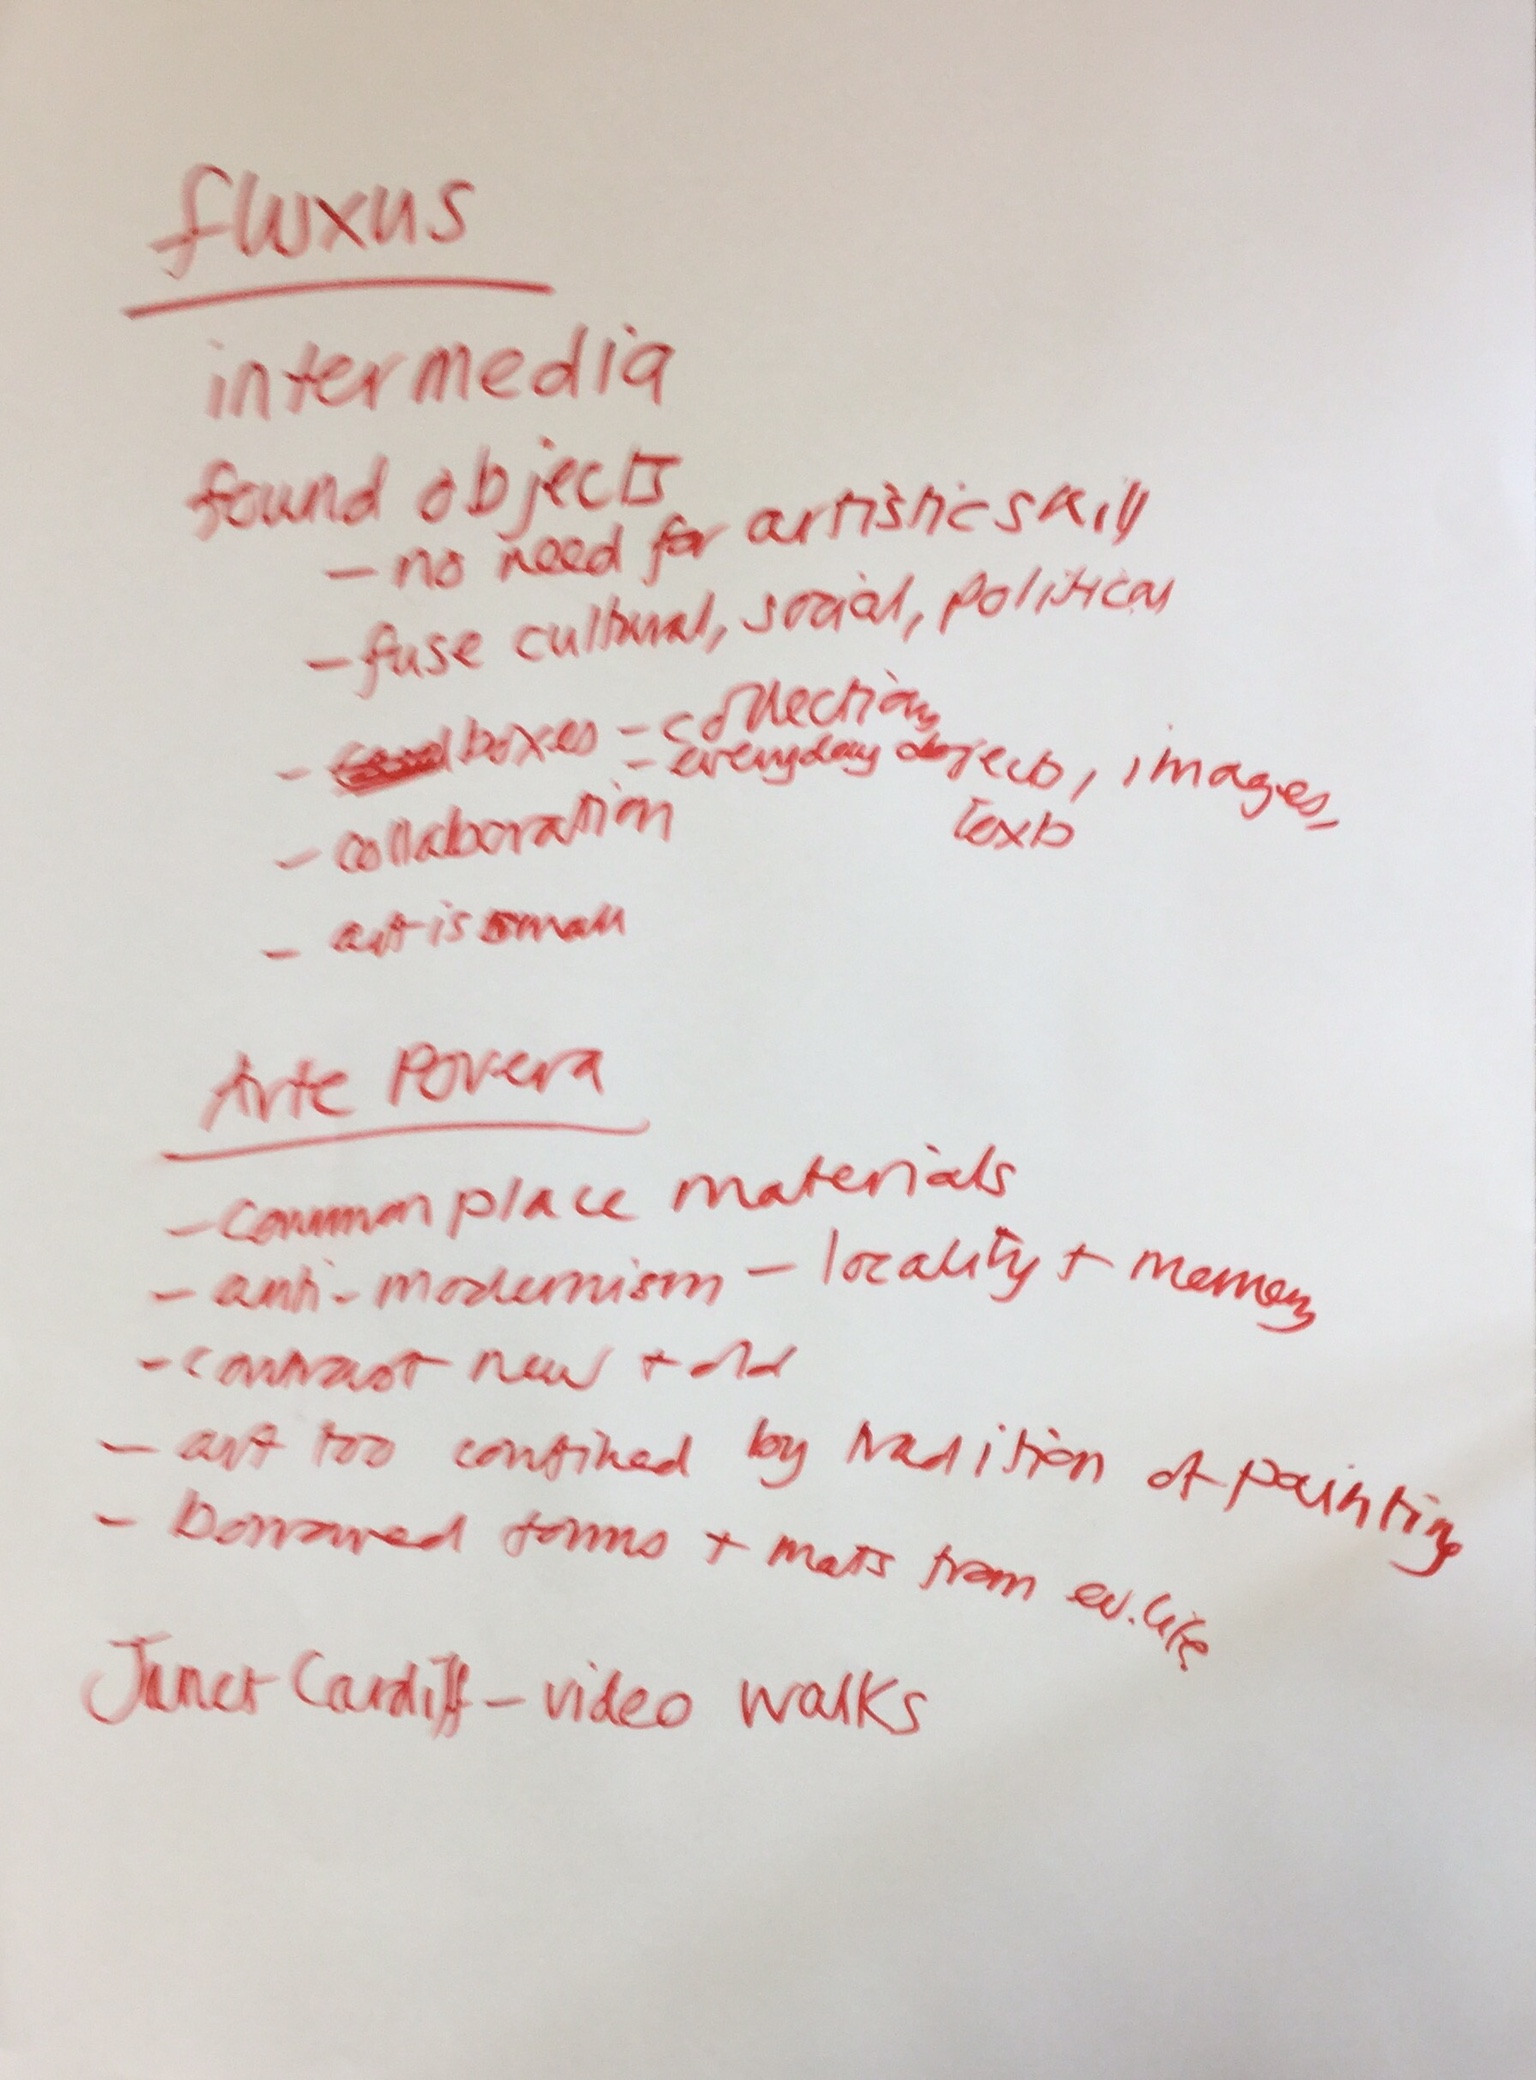 fluxus
intermedia
found objects
- no need for artistic skill
- fuse cultural, social, political
- boxes - collections
- everyday objects, images,
texts
- collaboration
- art is small
Arte Povera
- commonplace materials
- anti-modernism - locality + memory
- contrast new + old
- art too confined by tradition of painting
- borrowed forms + mats from ev. life
Janet Cardiff - video walks